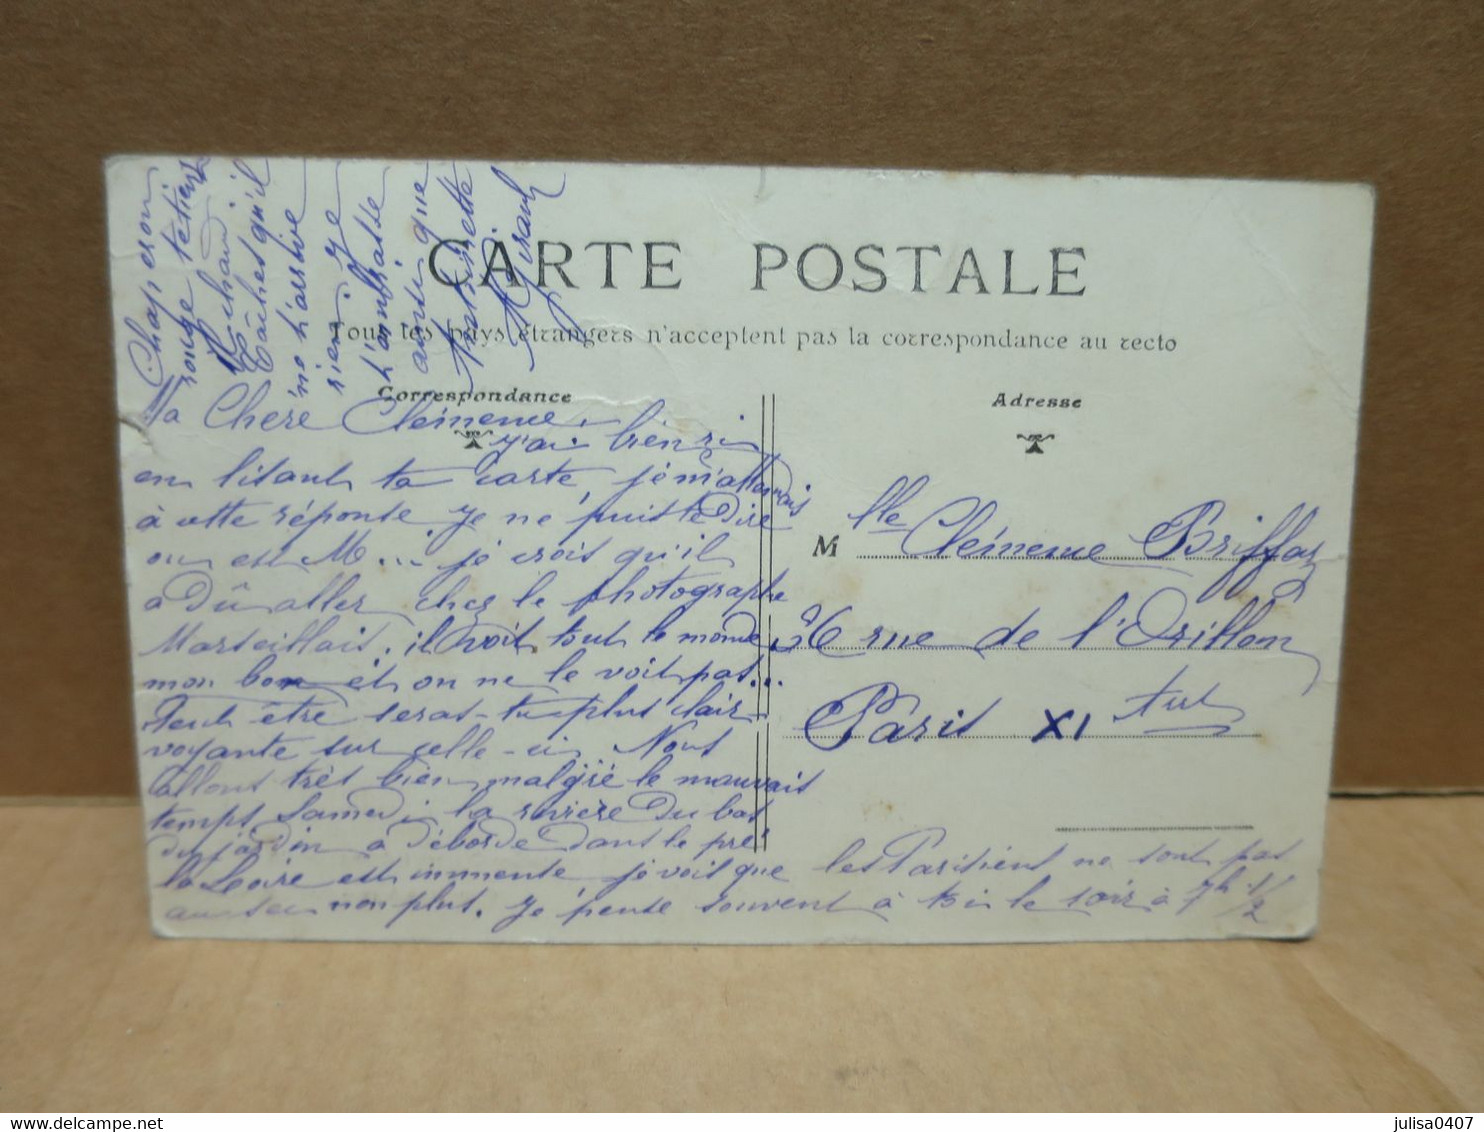 CARTE POSTALE
Tous les pays étrangers n'acceptent pas la correspondance au recto
Correspondance
Adresse
Ma Chere Clémence
j'ai bien ri
en lisant ta carte, je m'attendais
à cette réponse je ne puis te dire
ou est M... je crois qu'il
a dû aller chez le photographe
Marseillais. il voit tout le monde
mon bon et on ne le voit pas...
Peut être seras-tu plus clair
voyante sur celle-ci Nous
allons très bien malgré le mauvais
temps Samedi la rivière du bas
du jardin a débordé dans le pré
la Loire est immense je vois que les Parisiens ne sont pas
non plus. Je pense souvent à toi le soir à 7h 1/2
Chaperon
rouge
qu'il
n'arrive
rien. je
t'embrasse
ainsi que
M
lle Clémence Briffaz
36 rue de l'Orillon
Paris XI
julisa0407